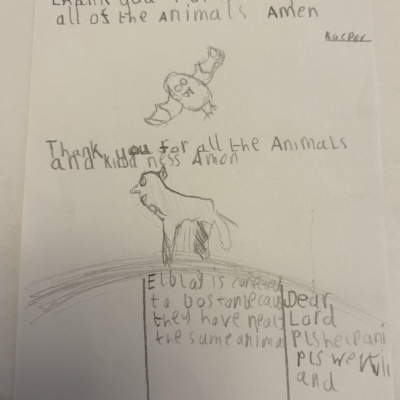 thank you for
all of the Animals Amen
Kacper
Thank you for all the Animals
and kindness Amon
Elblag is connected
to bostonbecau
they have nealy
the same anima
Dear
Lord
Pls help ani
pls we
and